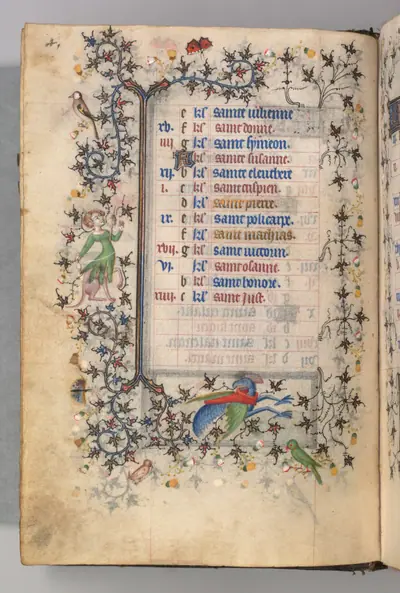 e kl' sainte iulienne
xv. f kl' saint donne.
iiii g kl' saint symeon.
A kl' sainte susanne.
xii b kl' saint eleuthere
i. c kl' saint crispien.
d kl' saint pierre.
ix. e kl' saint policarpe.
f kl' saint mathias.
xvii. g kl' saint uictorin.
vi. kl' saint osanne.
b kl' saint honore.
xiiii. c kl' saint Just.